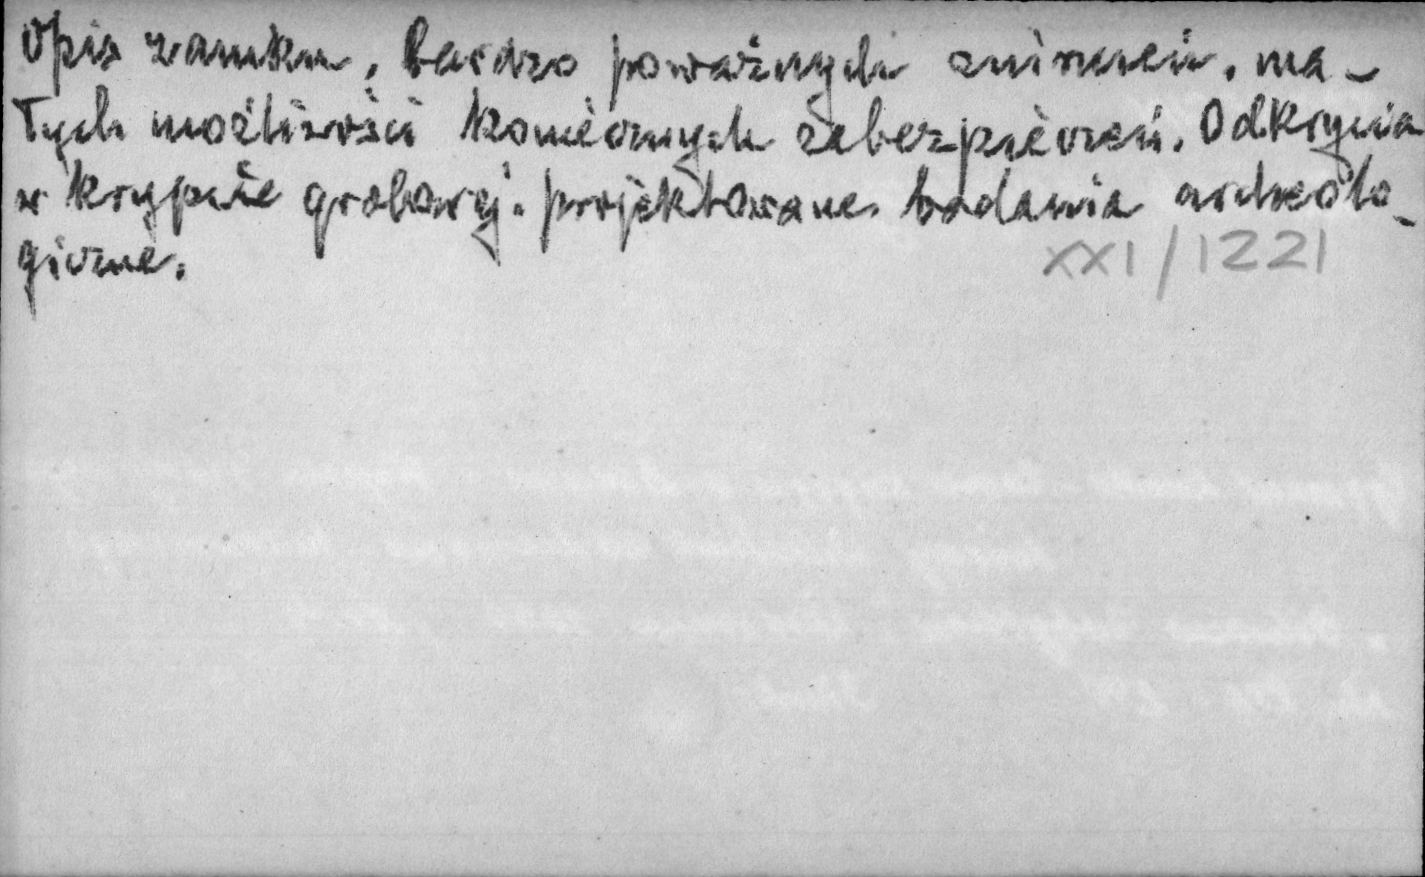 Opis zamku, bardzo poważnych zniszczeń, ma-
łych możliwości koniecznych zabezpieczeń. Odkrycia
w krypcie grobowej. projektowane badania archeolo-
giczne.
XXI/1221